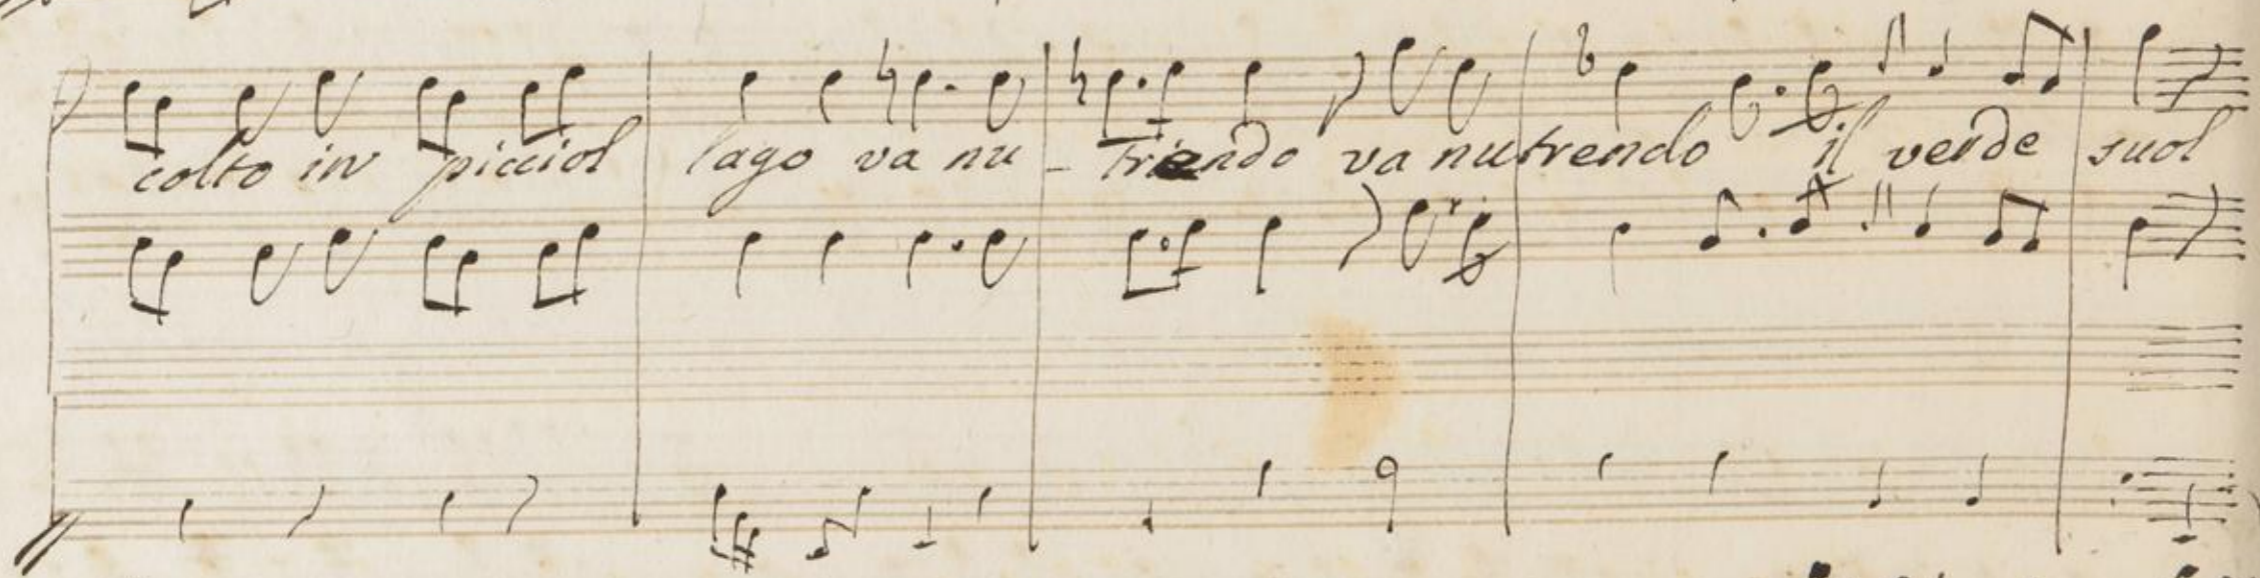 colto in picciol lago va nu - triendo va nutrendo il verde suol